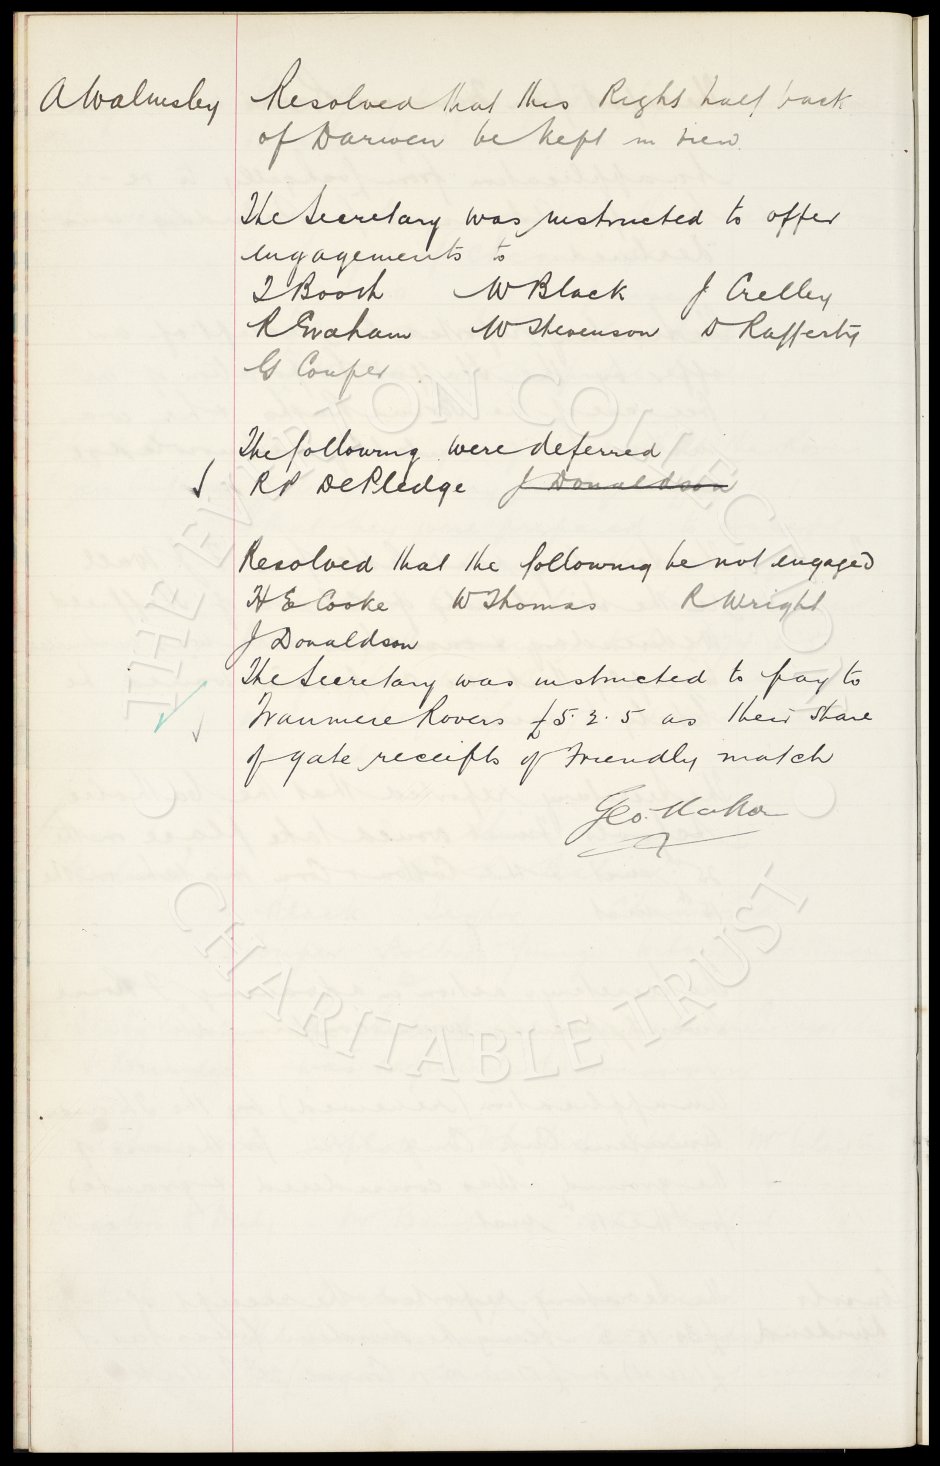 A Walmsley Resolved that this Right half back
of Darwen be kept in view.
The Secretary was instructed to offer
engagements to
T Booth W Black J Crelley
R Graham W Stevenson D Rafferty
G Couper
The following were deferred
RP DePledge J Donaldson
Resolved that the following be not engaged
H E Cooke W Thomas R Wright
J Donaldson
The Secretary was instructed to pay to
Tranmere Rovers £5.2.5 as their share
of gate receipts of Friendly match
Geo. Mahon
THE EVERTON COLLECTION
CHARITABLE TRUST